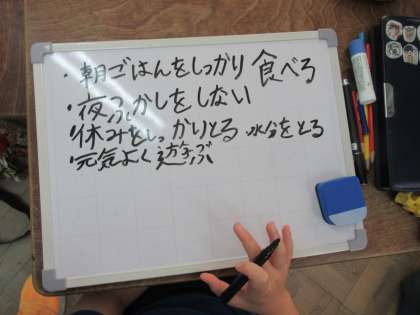 ・朝ごはんをしっかり食べろ
・夜ふかしをしない
・休みをしっかりとる 水分をとる
・元気よく遊ぶ